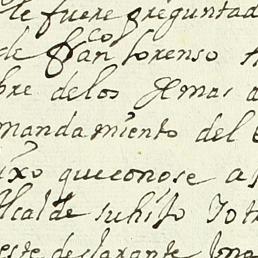 le fuere preguntad
de fran co lorenso
bre delos demas a
mandamiento del
ixo que conose a
Alcalde su hijo
este declarante